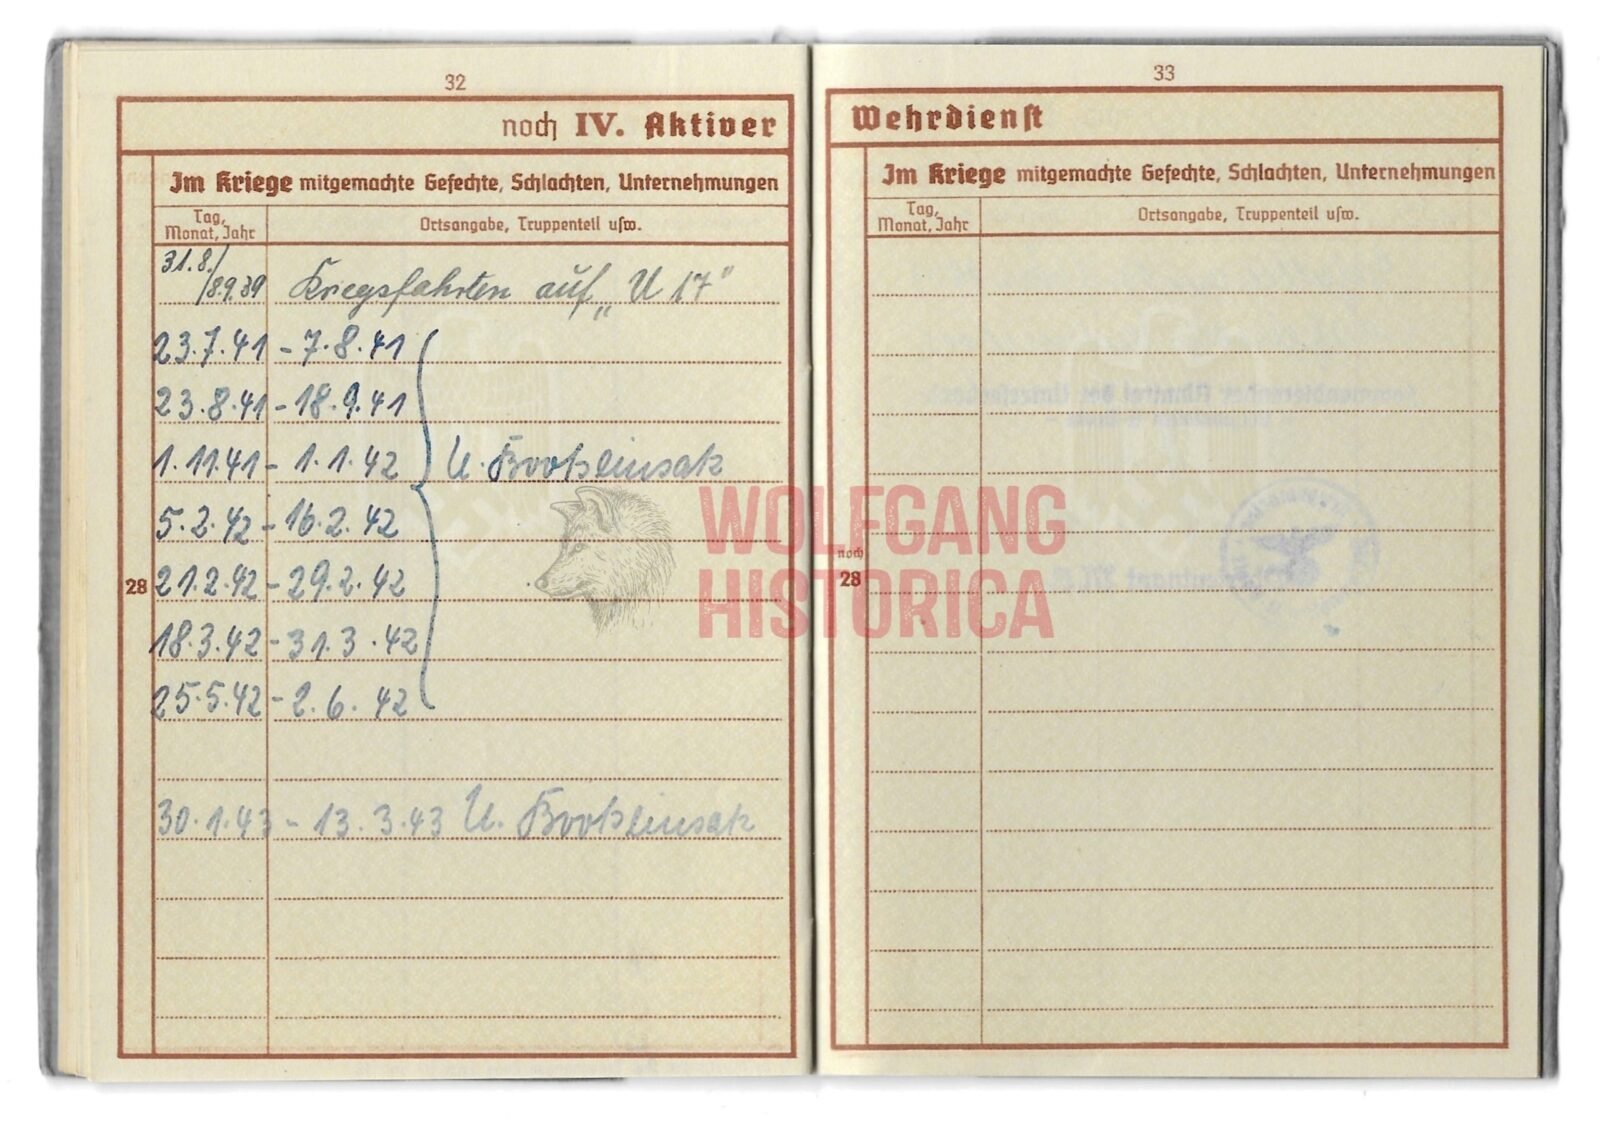 32
noch IV. Aktiver
Im Kriege mitgemachte Gefechte, Schlachten, Unternehmungen
Tag, Monat, Jahr
Ortsangabe, Truppenteil usw.
31.8./
/8.9.39 Kriegsfahrten auf „U 17"
23.7.41 - 7.8.41
23.8.41 - 18.9.41
1.11.41 - 1.1.42 U. Bootseinsatz
5.2.42 - 16.2.42
28
21.2.42 - 29.2.42
18.3.42 - 31.3.42
25.5.42 - 2.6.42
30.1.43 - 13.3.43 U. Bootseinsatz
33
Wehrdienst
Im Kriege mitgemachte Gefechte, Schlachten, Unternehmungen
Tag, Monat, Jahr
Ortsangabe, Truppenteil usw.
noch
28
WOLFGANG
HISTORICA